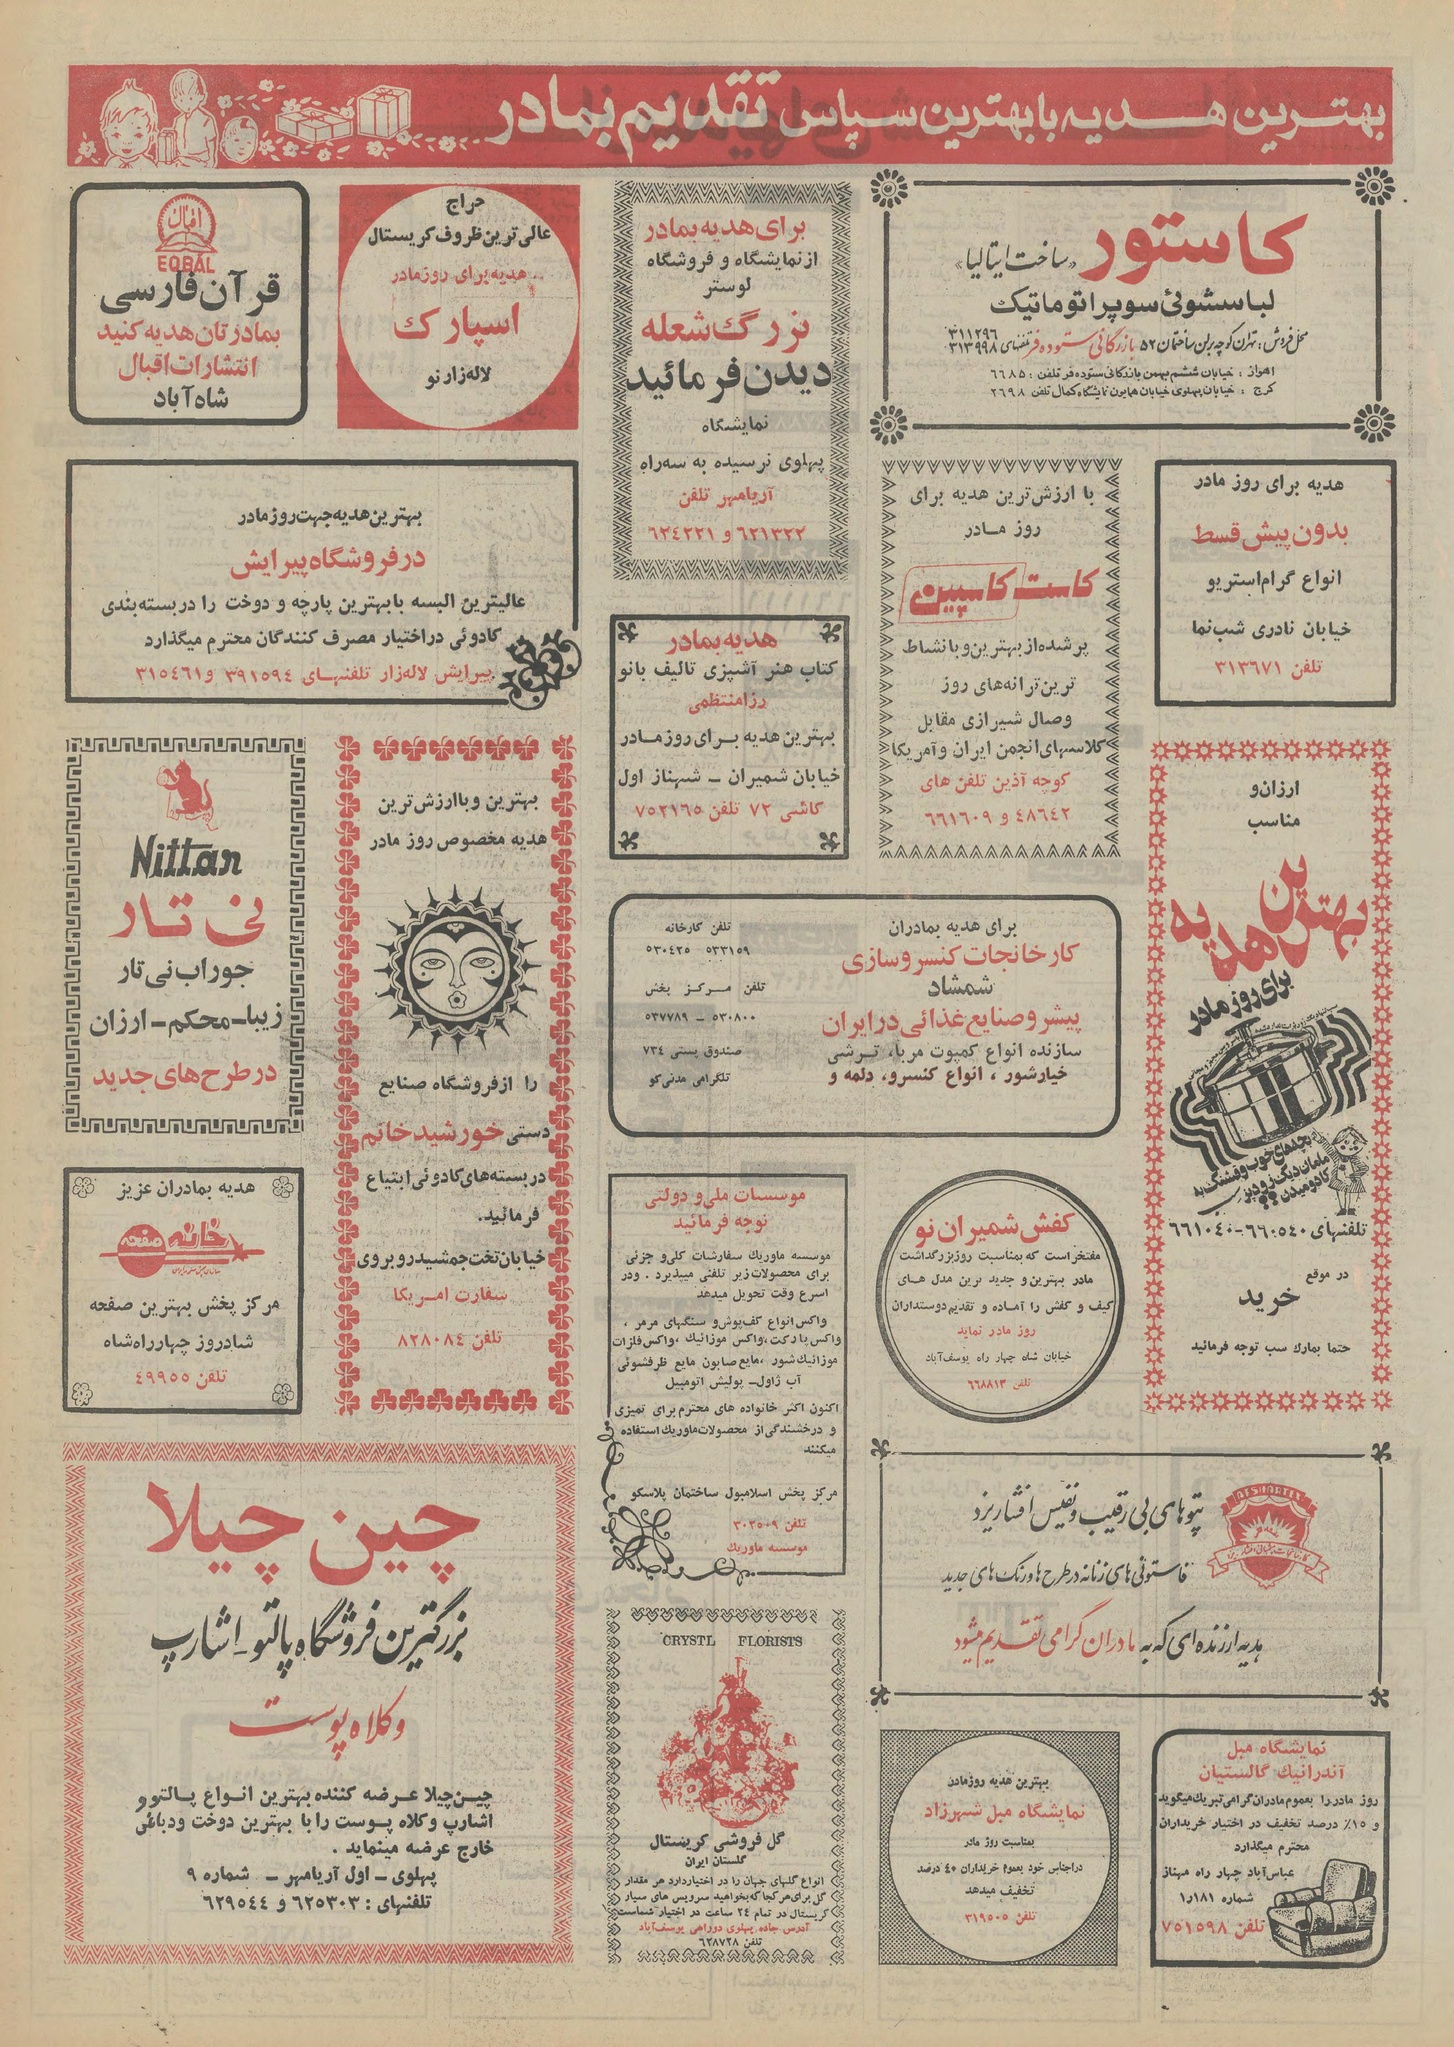 بهترین هدیه با بهترین سپاس تقدیم بمادر
کاستور «ساخت ایتالیا»
لباسشوئی سوپر اتوماتیک
محل فروش: تهران کوچه برلن ساختمان ۵۲ بازرگانی ستوده فر تلفنهای ۳۱۱۲۹۶
۳۱۳۹۹۸
اهواز : خیابان ششم بهمن بازرگانی ستوده فر تلفن : ۶۶۸۵
کرج : خیابان پهلوی خیابان همایون نمایشگاه کمال تلفن ۲۶۹۸
برای هدیه بمادر
از نمایشگاه و فروشگاه
لوستر
بزرگ شعله
دیدن فرمائید
نمایشگاه
پهلوی نرسیده به سه راه
آریامهر تلفن
۶۲۱۳۲۲ و ۶۲۴۲۲۱
حراج
عالی‌ترین ظروف کریستال
هدیه برای روز مادر
اسپارک
لاله زار نو
اقبال
EQBAL
قرآن فارسی
بمادرتان هدیه کنید
انتشارات اقبال
شاه آباد
هدیه برای روز مادر
بدون پیش قسط
انواع گرام استریو
خیابان نادری شب نما
تلفن ۳۱۳۶۷۱
با ارزش ترین هدیه برای
روز مادر
کاست کاسپین
پر شده از بهترین و با نشاط
ترین ترانه های روز
وصال شیرازی مقابل
کلاسهای انجمن ایران و آمریکا
کوچه آذین تلفن های
۴۸۶۴۲ و ۶۶۱۶۰۹
بهترین هدیه جهت روز مادر
در فروشگاه پیرایش
عالیترین البسه با بهترین پارچه و دوخت را در بسته بندی
کادوئی در اختیار مصرف کنندگان محترم میگذارد
پیرایش لاله زار تلفنهای ۳۹۱۵۹۴ و ۳۱۵۴۶۱
هدیه بمادر
کتاب هنر آشپزی تالیف بانو
رزا منتظمی
بهترین هدیه برای روز مادر
خیابان شمیران - شهناز اول
کاشی ۷۲ تلفن ۷۵۲۱۶۵
ارزان و
مناسب
بهترین هدیه
برای روز مادر
بچه های خوب و قشنگ به
مامان دیگ زودپز
کادو میدن
تلفنهای ۶۶۰۵۴۰-۶۶۱۰۴۰
در موقع
خرید
حتما بمارک سب توجه فرمائید
بهترین و با ارزش ترین
هدیه مخصوص روز مادر
را از فروشگاه صنایع
دستی خورشید خانم
در بسته های کادوئی ابتیاع
فرمائید.
خیابان تخت جمشید روبروی
سفارت امریکا
تلفن ۸۲۸۰۸۴
Nittan
نی تار
جوراب نی تار
زیبا-محکم-ارزان
در طرح های جدید
برای هدیه بمادران
کارخانجات کنسروسازی
شمشاد
پیشرو صنایع غذائی در ایران
سازنده انواع کمپوت مربا، ترشی
خیارشور ، انواع کنسرو، دلمه و
تلفن کارخانه
۵۳۳۱۵۹ ۵۳۰۴۲۵
تلفن مرکز پخش
۵۳۰۸۰۰ - ۵۳۷۷۸۹
صندوق پستی ۷۳۴
تلگرامی مدنی کو
هدیه بمادران عزیز
خانه صفحه
مرکز پخش بهترین صفحه
شادروز چهارراه شاه
تلفن ۴۹۹۵۵
موسسات ملی و دولتی
توجه فرمائید
موسسه ماوریک سفارشات کلی و جزئی
برای محصولات زیر تلفنی میپذیرد . ودر
اسرع وقت تحویل میدهد
واکس انواع کف‌پوش و سنگهای مرمر ،
واکس پارکت، واکس موزائیک، واکس فلزات
موزائیک شور ، مایع صابون مایع ظرفشوئی
آب ژاول- پولیش اتومبیل
اکنون اکثر خانواده های محترم برای تمیزی
و درخشندگی از محصولات ماوریک استفاده
میکنند
مرکز پخش اسلامبول ساختمان پلاسکو
تلفن ۳۰۲۵۰۹
موسسه ماوریک
کفش شمیران نو
مفتخر است که بمناسبت روز بزرگداشت
مادر بهترین و جدید ترین مدل های
کیف و کفش را آماده و تقدیم دوستداران
روز مادر نماید
خیابان شاه چهار راه یوسف آباد
تلفن ۶۶۸۸۱۳
AFSHARTEX
پتوهای بی رقیب و نفیس افشار یزد
فاستونی های زنانه در طرح ها و رنگ های جدید
هدیه ارزنده ای که به مادران گرامی تقدیم میشود
چین چیلا
بزرگترین فروشگاه پالتو - اشارپ
و کلاه پوست
چین چیلا عرضه کننده بهترین انواع پالتو و
اشارپ و کلاه پوست را با بهترین دوخت و دباغی
خارج عرضه مینماید .
پهلوی - اول آریامهر - شماره ۹
تلفنهای : ۶۲۵۳۰۳ و ۶۲۹۵۴۴
CRYSTL FLORISTS
گل فروشی کریستال
گلستان ایران
انواع گلهای جهان را در اختیار دارد هر مقدار
گل برای هر کجا که بخواهید سرویس های سیار
کریستال در تمام ۲۴ ساعت در اختیار شماست
آدرس جاده پهلوی دوراهی یوسف آباد
تلفن ۶۲۸۷۲۸
بهترین هدیه روز مادر
نمایشگاه مبل شهرزاد
بمناسبت روز مادر
در اجناس خود بعموم خریداران ۴۰ درصد
تخفیف میدهد
تلفن ۳۱۹۵۰۵
نمایشگاه مبل
آندرانیک گالستیان
روز مادر را بعموم مادران گرامی تبریک میگوید
و ۱۵٪ درصد تخفیف در اختیار خریداران
محترم میگذارد
عباس آباد چهار راه مهناز
شماره ۱۸۱ر۱
تلفن ۷۵۱۵۹۸